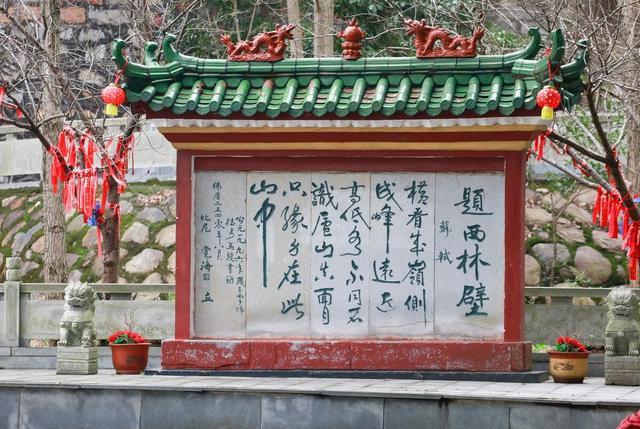 題西林壁
蘇軾
橫看成嶺側
成峰遠近
高低各不同不
識廬山真面目
只緣身在此
山中
公元一九九六年歲
比尼
立